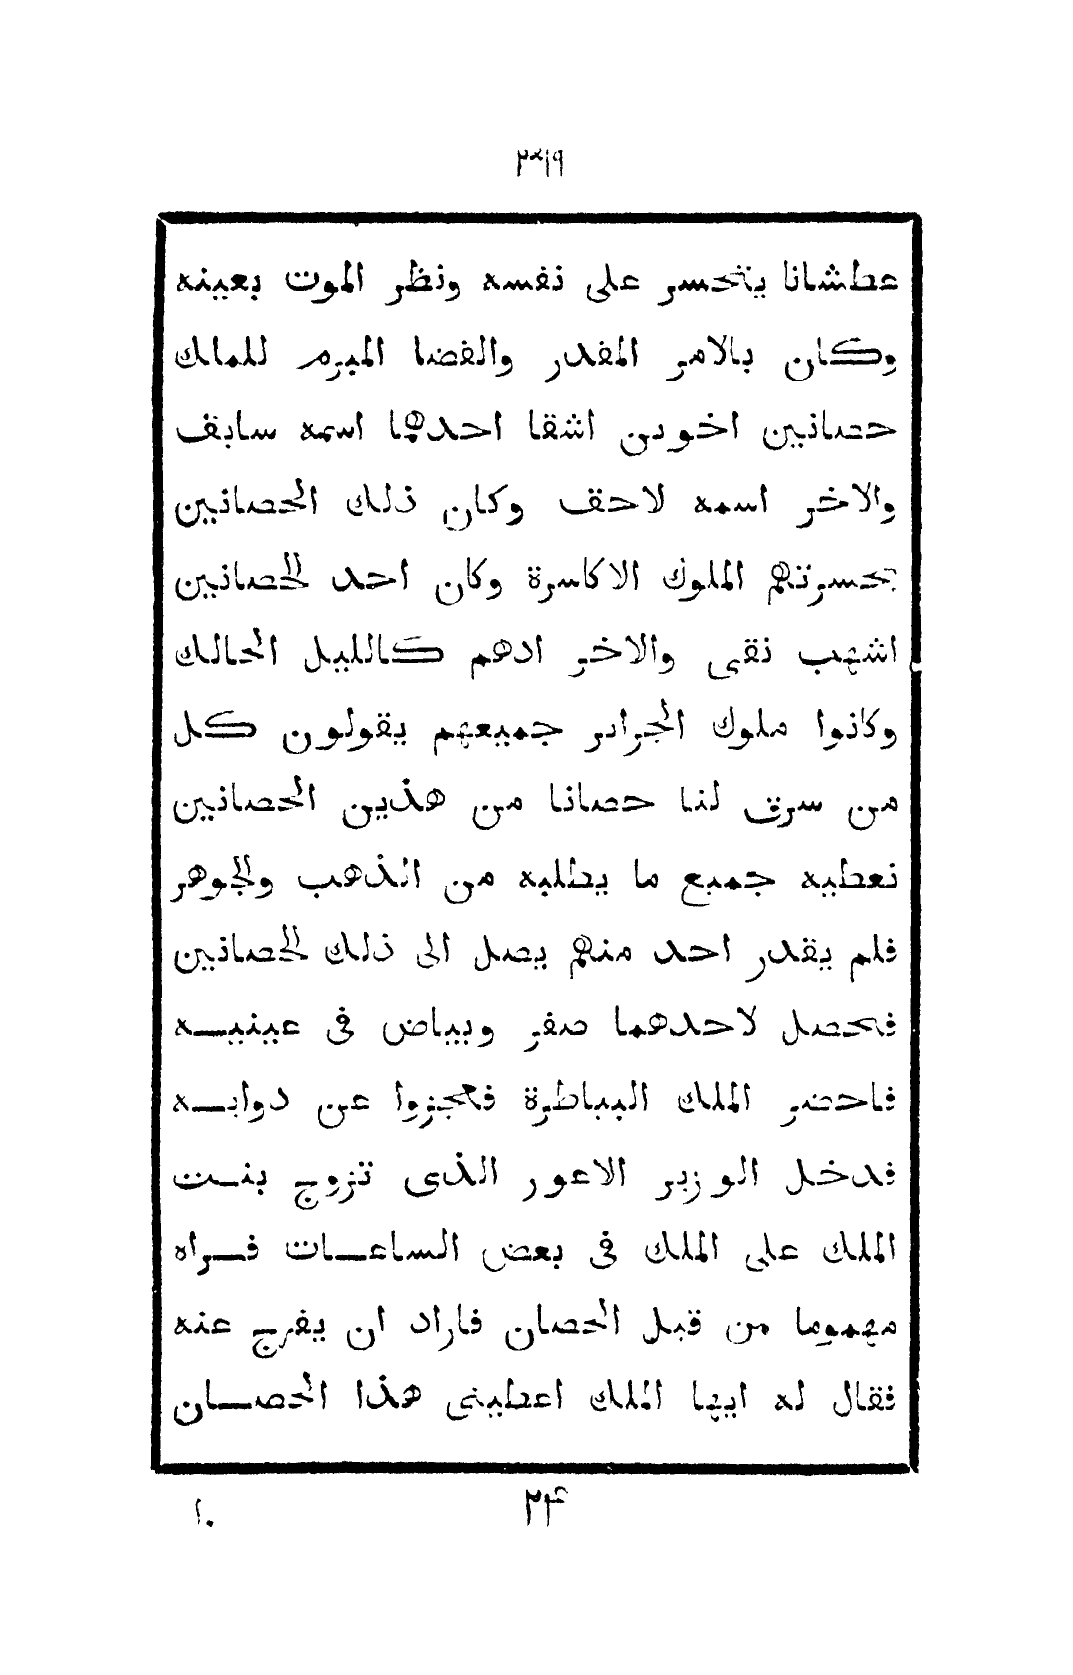 ٣١٩
عطشانا يتحسر على نفسه ونظر الموت بعينه
وكان بالامر المقدر والقضا المبرم للملك
حصانين اخوين اشقا احدهما اسمه سابق
والاخر اسمه لاحق وكان ذلك الحصانين
بحسرتهم الملوك الاكاسرة وكان احد الحصانين
اشهب نقى والاخر ادهم كالليل الحالك
وكانوا ملوك الجراير جميعهم يقولون كل
من سرق لنا حصانا من هذين الحصانين
نعطيه جميع ما يطلبه من الذهب والجوهر
فلم يقدر احد منهم يصل الى ذلك الحصانين
فحصل لاحدهما صفر وبياض فى عينيه
فاحضر الملك البياطرة فعجزوا عن دوايه
فدخل الوزير الاعور الذى تزوج بنت
الملك على الملك فى بعض الساعات فراه
مهموما من قبل الحصان فاراد ان يفرج عنه
فقال له ايها الملك اعطينى هذا الحصان
٢٤
١٠